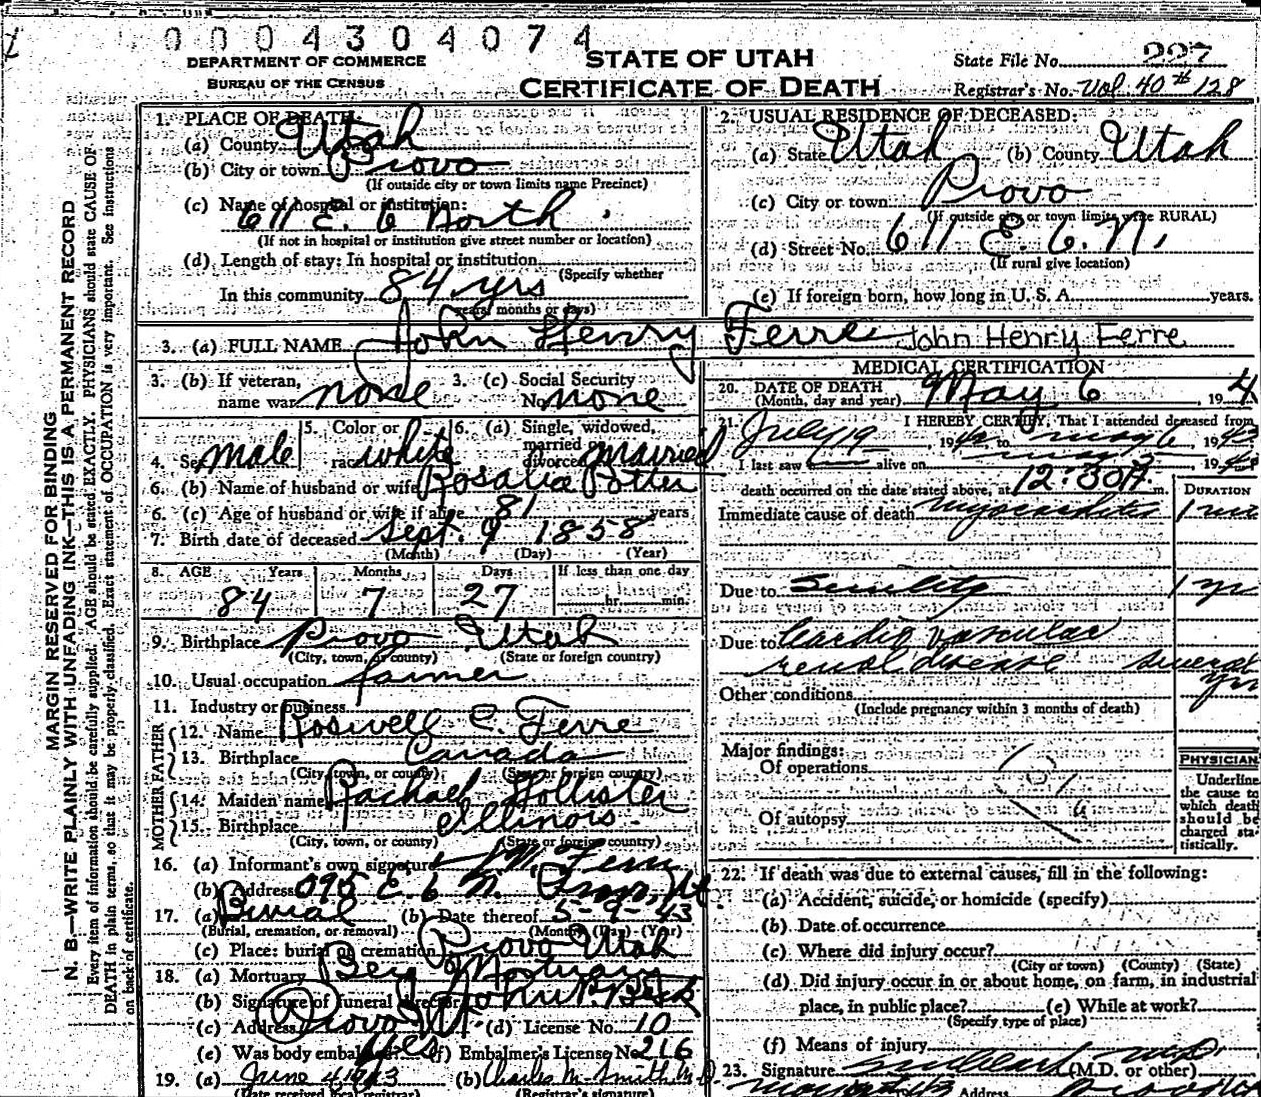 0004304074
DEPARTMENT OF COMMERCE
BUREAU OF THE CENSUS
STATE OF UTAH
CERTIFICATE OF DEATH
State File No. 227
Registrar's No. Vol. 40 # 128
MARGIN RESERVED FOR BINDING
N. B.—WRITE PLAINLY WITH UNFADING INK—THIS IS A PERMANENT RECORD
Every item of information should be carefully supplied. AGE should be stated EXACTLY. PHYSICIANS should state CAUSE OF
DEATH in plain terms, so that it may be properly classified. Exact statement of OCCUPATION is very important. See instructions
on back of certificate.
1. PLACE OF DEATH
(a) County Utah
(b) City or town Provo
(If outside city or town limits name Precinct)
(c) Name of hospital or institution:
611 E. 6 North.
(If not in hospital or institution give street number or location)
(d) Length of stay: In hospital or institution
(Specify whether
In this community 84 yrs
years, months or days)
2. USUAL RESIDENCE OF DECEASED:
(a) State Utah (b) County Utah
(c) City or town Provo
(If outside city or town limits write RURAL)
(d) Street No. 611 E. 6 N.
(If rural give location)
(e) If foreign born, how long in U. S. A. years.
3. (a) FULL NAME John Henry Ferre John Henry Ferre
3. (b) If veteran, name war none 3. (c) Social Security No. none
4. Sex male 5. Color or race white 6. (a) Single, widowed, married or divorced married
6. (b) Name of husband or wife Rosalia Potter
6. (c) Age of husband or wife if alive 81 years
7. Birth date of deceased Sept. 9 1858
(Month) (Day) (Year)
8. AGE Years Months Days If less than one day
84 7 27 hr. min.
9. Birthplace Provo Utah
(City, town, or county) (State or foreign country)
10. Usual occupation farmer
11. Industry or business
FATHER
12. Name Roswell C. Ferre
13. Birthplace Canada
(City, town, or county) (State or foreign country)
MOTHER
14. Maiden name Rachael Hollister
15. Birthplace Illinois.
(City, town, or county) (State or foreign country)
16. (a) Informant's own signature
(b) Address E. 6 N.
17. (a) Burial (b) Date thereof 5-9-43
(Burial, cremation, or removal) (Month) (Day) (Year)
(c) Place: burial or cremation Provo Utah
18. (a) Mortuary Berg Mortuary
(b) Signature of funeral director
(c) Address Provo Ut. (d) License No. 10
(e) Was body embalmed yes (f) Embalmer's License No. 216
19. (a) June 4, 1943 (b) Charles M. Smith M.D.
(Date received local registrar) (Registrar's signature)
MEDICAL CERTIFICATION
20. DATE OF DEATH
(Month, day and year) May 6, 194
21. I HEREBY CERTIFY, That I attended deceased from
July 19 1942 to May 6 1943
I last saw alive on 19
death occurred on the date stated above, at 12:30 A. m. DURATION
Immediate cause of death Myocarditis
Due to Senility 1 yr
Due to Cardio vascular
renal disease several
yrs
Other conditions
(Include pregnancy within 3 months of death)
Major findings:
Of operations
Of autopsy
PHYSICIAN
Underline
the cause to
which death
should be
charged sta-
tistically.
22. If death was due to external causes, fill in the following:
(a) Accident, suicide, or homicide (specify)
(b) Date of occurrence
(c) Where did injury occur?
(City or town) (County) (State)
(d) Did injury occur in or about home, on farm, in industrial
place, in public place? (e) While at work?
(Specify type of place)
(f) Means of injury
23. Signature (M.D. or other)
Address